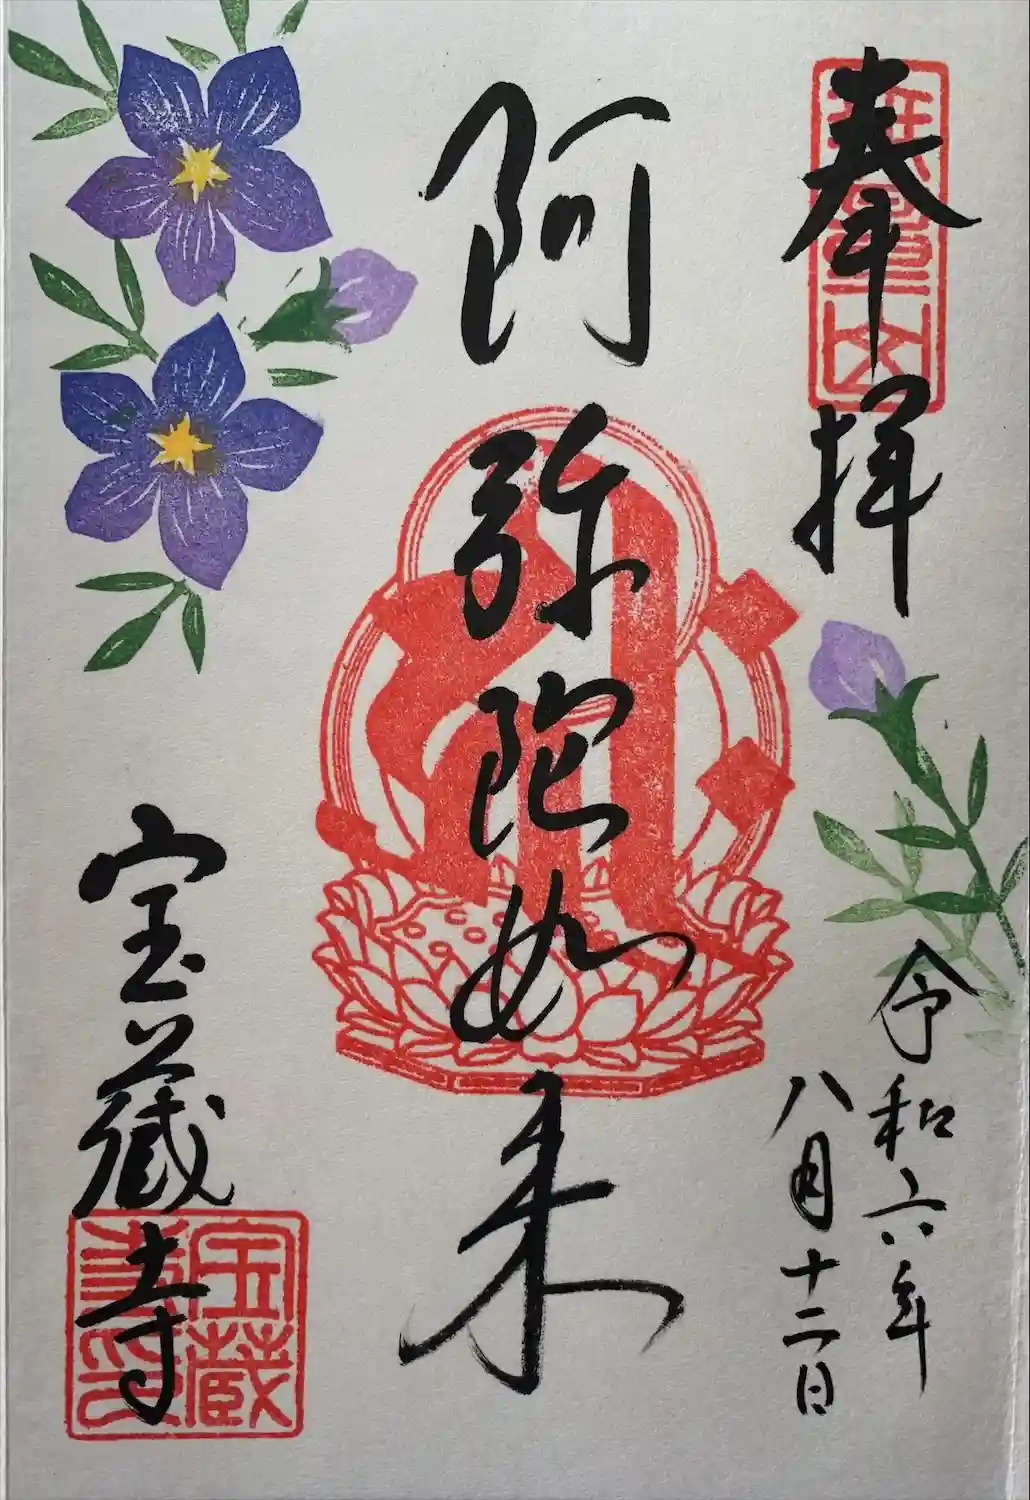 奉拝
令和六年
八月十二日
阿弥陀如来
宝蔵寺
宝蔵
寺印